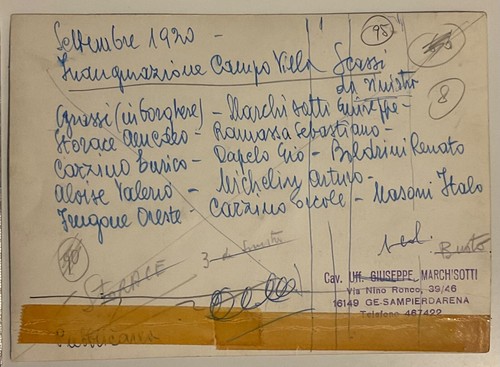 Settembre 1920 -
95
Inaugurazione Campo Villa Scassi
da sinistra
8
Grassi (in borghese) - Marchisotti Giuseppe -
Storace Amedeo - Ramassa Sebastiano -
Carzino Enrico - Dapelo Giò - Boldrini Renato
Aloise Valerio - Michelini Arturo -
Frugone Oreste - Carzino Ercole - Masoni Italo
90
3 da sinistra
STORACE
Busto
Cav. Uff. GIUSEPPE MARCHISOTTI
Via Nino Ronco, 39/46
16149 GE-SAMPIERDARENA
Telefono 467422